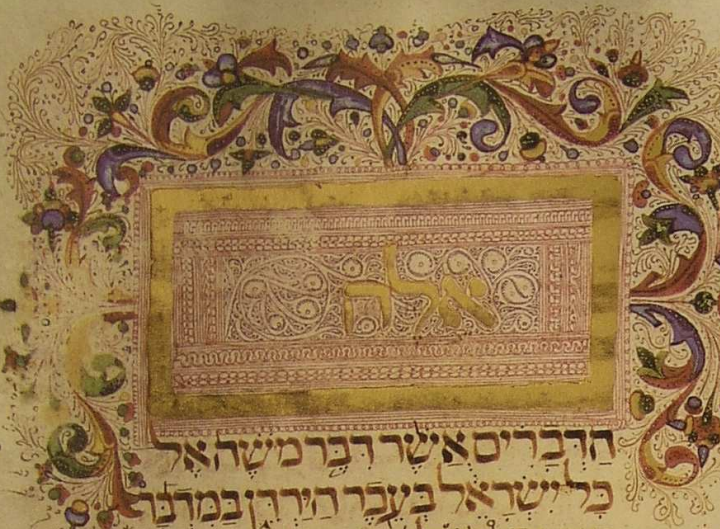 אלה
הדברים אשר דבר משה אל
כל ישראל בעבר הירדן במדבר